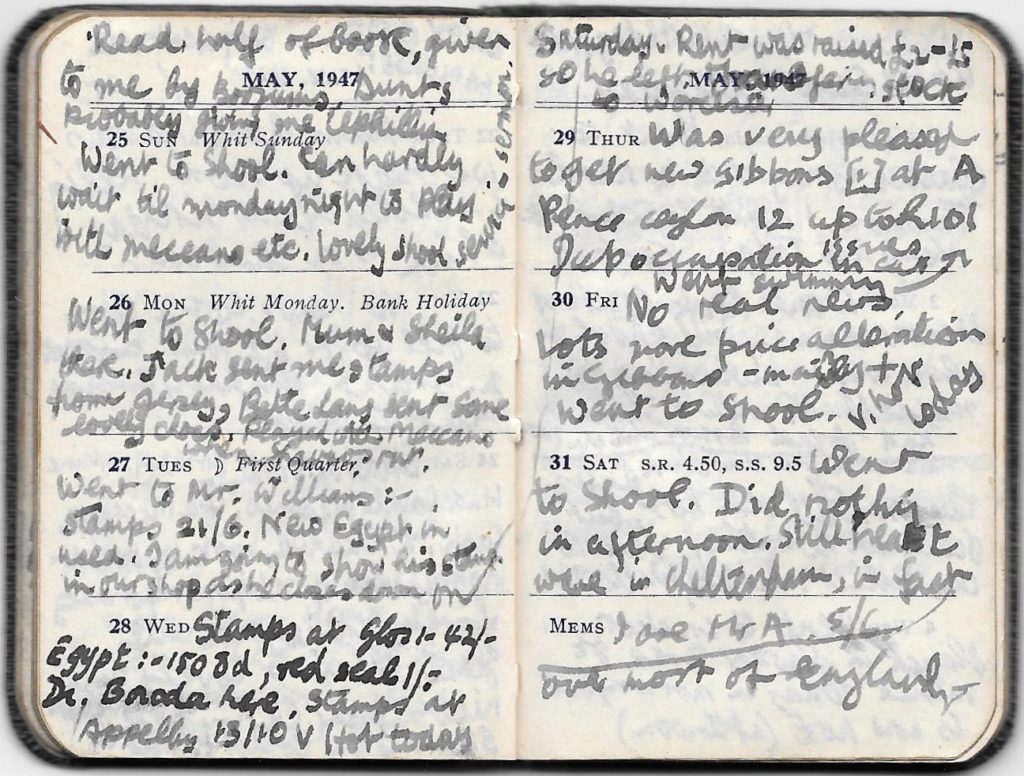 Read half of book, given
MAY, 1947
to me by Aunts
Probably giving me
25 SUN Whit Sunday
Went to Shool. Can hardly
wait til monday night to play
with meccano etc. Lovely shool service
sermon.
26 MON Whit Monday. Bank Holiday
Went to Shool. Mum & Sheila
there. Jack sent me stamps
from Jersey, sent some
lovely Played with Meccano
when went out.
27 TUES First Quarter,
Went to Mr. Williams :-
Stamps 21/6. New Egypt in
used. I am going to show his stamps
in our shop as he closes down on
28 WED Stamps at Glos :- 42/-
Egypt :- 150 d, red seal 1/-
Dr. Boroda here. Stamps at
Appelby 13/10 V Hot today
Saturday. Rent was raised £2-£5
MAY, 1947
so he left. stock
to Worcester
29 THUR Was very pleased
to get new Gibbons [:] at A
Pence Ceylon 12 up to
Jap occupation issues in
Went swimming
30 FRI No real news
Lots more price alterations
in Gibbons - mainly
Went to Shool. V. hot
31 SAT S.R. 4.50, S.S. 9.5 Went
to Shool. Did nothing
in afternoon. Still heat
wave in Cheltenham, in fact
MEMS I owe Mr A. 5/6
over most of England